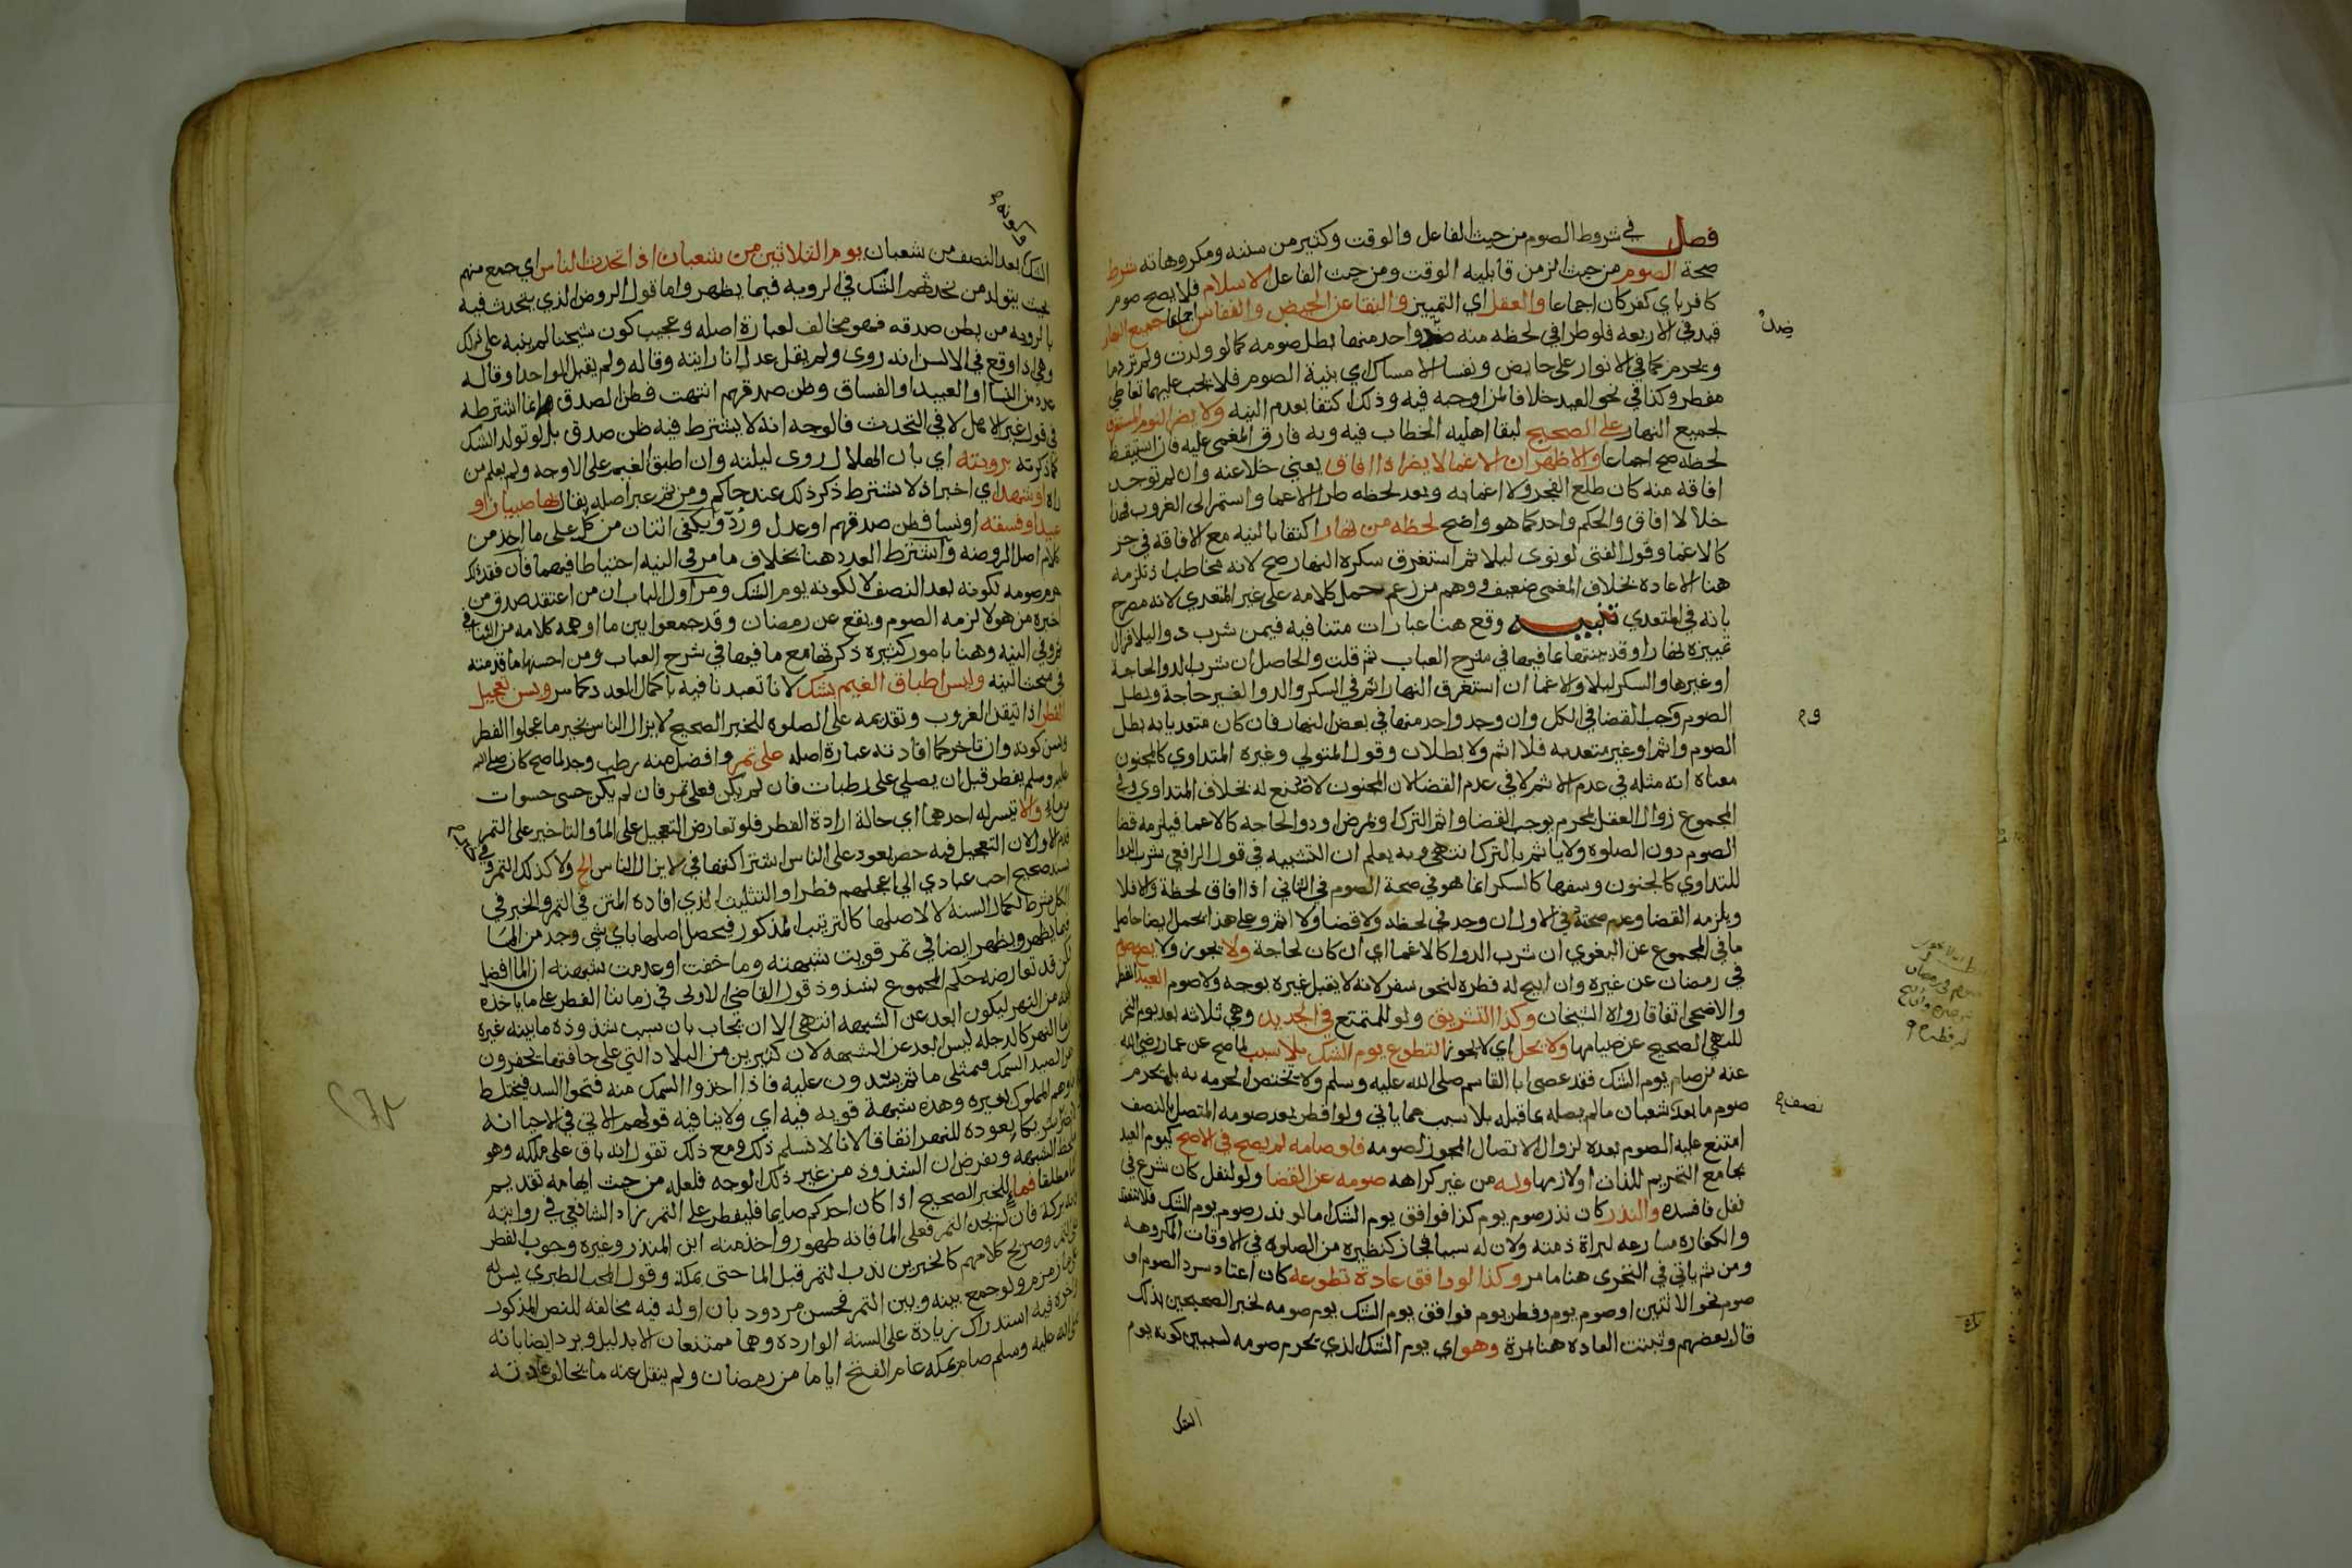 فصل في شروط الصوم من حيث الفاعل والوقت وكثير من سننه ومكروهاته شرط
صحة الصوم من حيث الزمن قابليه الوقت ومن حيث الفاعل الاسلام فلا يصح صوم
كافر باي كفر كان اجماعا والعقل اي التمييز والنقا عن الحيض والنفاس اجماعا جميع النهار
قيد في الاربعه فلو طرا في لحظه منه ضد واحد منها بطل صومه كما لو ولدت ولم تر دما
ويحرم كما في الانوار على حايض ونفسا الامساك اي بنية الصوم فلا يجب عليها تعاطي
مفطر وكذا في نحو العيد خلافا لمن اوجبه فيه وذلك اكتفا بعدم النيه ولا يضر النوم المستغرق
لجميع النهار على الصحيح لبقا اهليه الخطاب فيه وبه فارق المغمى عليه فان استيقظ
لحظه صح اجماعا والاظهر ان الاغما لا يضر اذا افاق يعني خلا عنه وان لم توجد
افاقه منه كان طلع الفجر ولا اغما به وبعد لحظه طرا الاغما واستمر الى الغروب فهذا
خلا لا افاق والحكم واحد كما هو واضح لحظه من نهار اكتفا بالنيه مع الافاقه في جز
كالاغما وقول القفال لو نوى ليلا ثم استغرق سكره النهار صح لانه مخاطب اذ تلزمه
هنا الاعاده بخلاف المغمى ضعيف ووهم من زعم حمل كلامه على غير المتعدي لانه مصرح
بانه في المتعدي تنبيه وقع هنا عبارات متنافيه فيمن شرب دوا ليلا فزال
تمييزه نهارا وقد بينتها بما فيها في شرح العباب ثم قلت والحاصل ان شرب الدوا لحاجة
او غيرها والسكر ليلا والاغما ان استغرق النهار اثم في السكر والدوا لغير حاجة وبطل
الصوم وجب القضا في الكل وان وجد واحد منها في بعض النهار فان كان متعديا به بطل
الصوم واثم او غير متعد به فلا اثم ولا بطلان وقول المتولي وغيره المتداوي كالمجنون
معناه انه مثله في عدم الاثم لا في عدم القضا لان المجنون لا صنع له بخلاف المتداوي وفي
المجموع زوال العقل بمحرم يوجب القضا واثم الترك او بمرض او دوا لحاجه كالاغما فيلزمه قضا
الصوم دون الصلوه ولا ياثم بالترك انتهى وبه يعلم ان التشبيه في قول الرافعي شرب الدوا
للتداوي كالجنون وسفها كالسكر انما هو في صحة الصوم في الثاني اذا افاق لحظة والا فلا
ويلزمه القضا وعدم صحته في الاول ان وجد في لحظه ولا قضا ولا اثم وعلى هذا يحمل ايضا حاصل
ما في المجموع عن البغوي ان شرب الدوا كالاغما اي ان كان لحاجة ولا يجوز ولا يصح صوم
في رمضان عن غيره وان ابيح له فطره لنحو سفر لانه لا يقبل غيره بوجه ولا صوم العيد الفطر
والاضحى اتفاقا رواه الشيخان وكذا التشريق ولو للمتمتع في الجديد وهي ثلاثه بعد يوم النحر
للنهي الصحيح عن صيامها ولا يحل اي لا يجوز التطوع يوم الشك بلا سبب لما صح عن عمار رضي الله
عنه من صام يوم الشك فقد عصى ابا القاسم صلى الله عليه وسلم ولا يختص الحرمه به بل يحرم
صوم ما بعد شعبان ما لم يصله بما قبله بلا سبب مما ياتي ولو افطر بعد صومه المتصل بالنصف
امتنع عليه الصوم بعده لزوال الاتصال المجوز لصومه فلو صامه لم يصح في الاصح كيوم العيد
بجامع التحريم للذات او لازمها وله من غير كراهه صومه عن القضا ولو لنفل كان شرع في
نفل فافسده والنذر كان نذر صوم يوم كذا فوافق يوم الشك اما لو نذر صوم يوم الشك فلا ينعقد
والكفاره مسارعه لبراة ذمته ولان له سببا فجاز كنظيره من الصلوه في الاوقات المكروهه
ومن ثم ياتي في التحري هنا ما مر وكذا لو وافق عادة تطوعه كان اعتاد سرد الصوم او
صوم نحو الاثنين او صوم يوم وفطر يوم فوافق يوم الشك يوم صومه لخبر الصحيحين بذلك
قال بعضهم وثبتت العاده هنا بمرة وهو اي يوم الشك الذي يحرم صومه لسببين كونه يوم
الشك
ضد
نصف
الشك بعد النصف من شعبان يوم الثلاثين من شعبان اذا تحدث الناس اي جمع منهم
وكونه
بحيث يتولد من تحدثهم الشك في الرويه فيما يظهر واما قول الروض الذي يتحدث فيه
بالرويه من يظن صدقه فهو مخالف لعبارة اصله وعجيب كون شيخنا لم ينبه على ذلك
وهي اذا وقع في الالسن انه روى ولم يقل عدل انا رايته وقاله ولم يقبل الواحد او قاله
عدد من النسا او العبيد او الفساق وظن صدقهم انتهت فظن الصدق انما اشترطه
في قول غير الاهل لا في التحدث فالوجه انه لا يشترط فيه ظن صدق بل لو تولد الشك
كما ذكرته برويته اي بان الهلال روى ليلته وان اطبق الغيم على الاوجه ولم يعلم من
راه او شهد اي اخبر اذ لا يشترط ذكر ذلك عند حاكم ومن ثم عبر اصله بقال بها صبيان او
عبيد او فسقه او نسا وظن صدقهم او عدل ورد ويكفي اثنان من كل على ما اخذ من
كلام اصل الروضه واشترط العدد هنا بخلاف ما مر في النيه احتياطا فيهما فان فقد ذلك
حرم صومه لكونه بعد النصف لا لكونه يوم الشك ومر اول الباب ان من اعتقد صدق من
اخبره من هولا لزمه الصوم ويقع عن رمضان وقد جمعوا بين ما اوهمه كلامه من التنافي
ثم وفي النيه وهنا بامور كثيره ذكرتها مع ما فيها في شرح العباب ومن احسنها ما قدمته
في مبحث النيه وليس اطباق الغيم بشك لانا تعبدنا فيه باكمال العدد كما مر ويسن تعجيل
الفطر اذا تيقن الغروب وتقديمه على الصلوه للخبر الصحيح لا يزال الناس بخير ما عجلوا الفطر
ويسن كونه وان تاخر كما افادته عبارة اصله على تمر وافضل منه رطب وجد لما صح كان صلى الله
عليه وسلم يفطر قبل ان يصلي على رطبات فان لم يكن فعلى تمر فان لم يكن حسى حسوات
من ماء والا تيسر له احدهما اي حالة ارادة الفطر فلو تعارض التعجيل على الما والتاخير على التمر
قدم الاول لان التعجيل فيه حض يعود على الناس اشتراكهما في لا يزال الناس الخ ولا كذلك التمر وفي
سند صحيح احب عبادي الي اعجلهم فطرا والتثليث الذي افاده المتن في التمر والخبر في
الكل شرط لكمال السنه لا لاصلها كالترتيب المذكور فيحصل اصلها باي شي وجد من الثلاثه
فيما يظهر ويظهر ايضا في تمر قويت شبهته وما خفت او عدمت شبهته ان الما افضل
لكن قد تعارضه حكم المجموع بشذوذ قول القاضي الاولى في زماننا الفطر على ما ياخذه
بكفه من النهر ليكون ابعد عن الشبهه انتهى الا ان يجاب بان سبب شذوذه ما بينه غيره
ان ما النهر كالدجله ليس ابعد عن الشبهه لان كثيرين من البلاد التي على حافتها يحفرون
من الصيد السمك فتمتلي ما ثم يسدون عليه فاذا اخذوا السمك منه فتحوا السد فيختلط
ماوهم المملوك بغيره وهذه شبهة قويه فيه اي ولا ينافيه قولهم الاتي في الاحيا انه
يعوده للنهر اتفاقا لانا لا نسلم ذلك ومع ذلك تقول انه باق على ملكه وهو
ملحظ الشبهه وبفرض ان الشذوذ من غير ذلك الوجه فلعله من حيث ايهامه تقديم
الما مطلقا فماء للخبر الصحيح اذا كان احدكم صايما فليفطر على التمر زاد الشافعي في روايته
فانه بركة فان لم يجد التمر فعلى الما فانه طهور واخذ منه ابن المنذر وغيره وجوب الفطر
على التمر وصريح كلامهم كالخبرين ندب التمر قبل الما حتى بمكة وقول المحب الطبري يسن له
على ما زمزم ولو جمع بينه وبين التمر فحسن مردود بان اوله فيه مخالفه للنص المذكور
واخره فيه استدراك زيادة على السنه الوارده وهما ممتنعان الا بدليل ويرد ايضا بانه
صلى الله عليه وسلم صام بمكه عام الفتح اياما من رمضان ولم ينقل عنه ما يخالف عادته